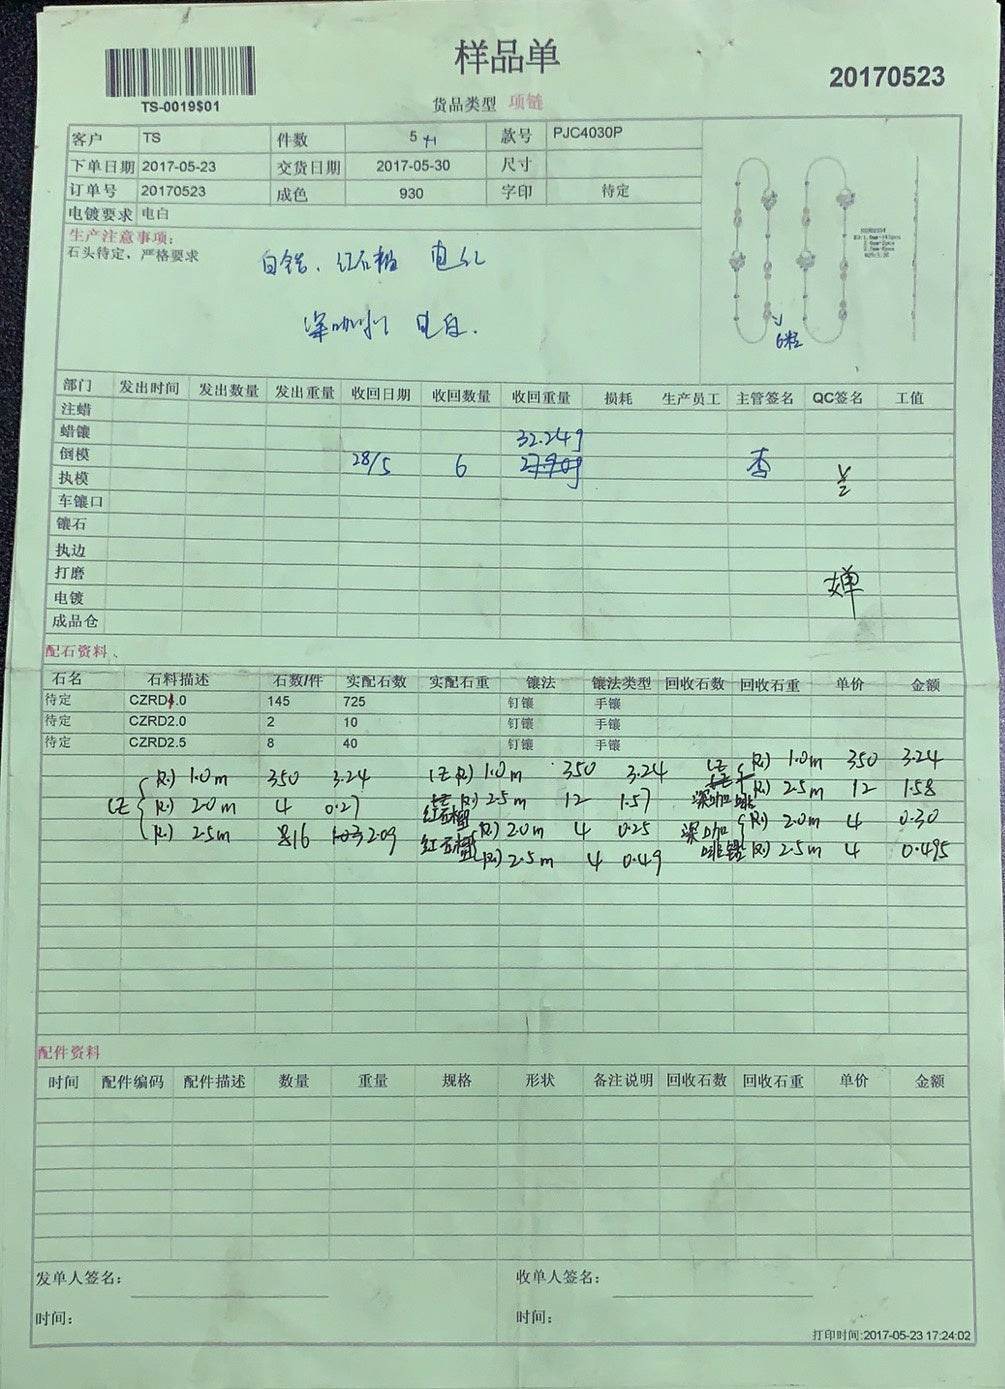 样品单
20170523
TS-0019$01
货品类型 项链
客户 TS 件数 5+1 款号 PJC4030P
下单日期 2017-05-23 交货日期 2017-05-30 尺寸
订单号 20170523 成色 930 字印 待定
电镀要求 电白
生产注意事项:
石头待定，严格要求
白锆、红石榴 电红
深咖啡 电白.
6粒
部门 发出时间 发出数量 发出重量 收回日期 收回数量 收回重量 损耗 生产员工 主管签名 QC签名 工值
注蜡
蜡镶
32.24g
倒模 28/5 6 27.90g
执模
车镶口
镶石
执边
打磨
电镀
成品仓
配石资料
石名 石料描述 石数/件 实配石数 实配石重 镶法 镶法类型 回收石数 回收石重 单价 金额
待定 CZRD1.0 145 725 钉镶 手镶
待定 CZRD2.0 2 10 钉镶 手镶
待定 CZRD2.5 8 40 钉镶 手镶
CZ R) 1.0m 350 3.24 CZ R) 1.0m 350 3.24 CZ R) 1.0m 350 3.24
R) 2.0m 4 0.27 红石榴 R) 2.5m 12 1.57 深咖啡 R) 2.5m 12 1.58
R) 2.5m 16 2.09 红石榴 R) 2.0m 4 0.25 深咖 R) 2.0m 4 0.30
R) 2.5m 4 0.49 啡锆 R) 2.5m 4 0.495
配件资料
时间 配件编码 配件描述 数量 重量 规格 形状 备注说明 回收石数 回收石重 单价 金额
发单人签名: 收单人签名:
时间: 时间:
打印时间:2017-05-23 17:24:02